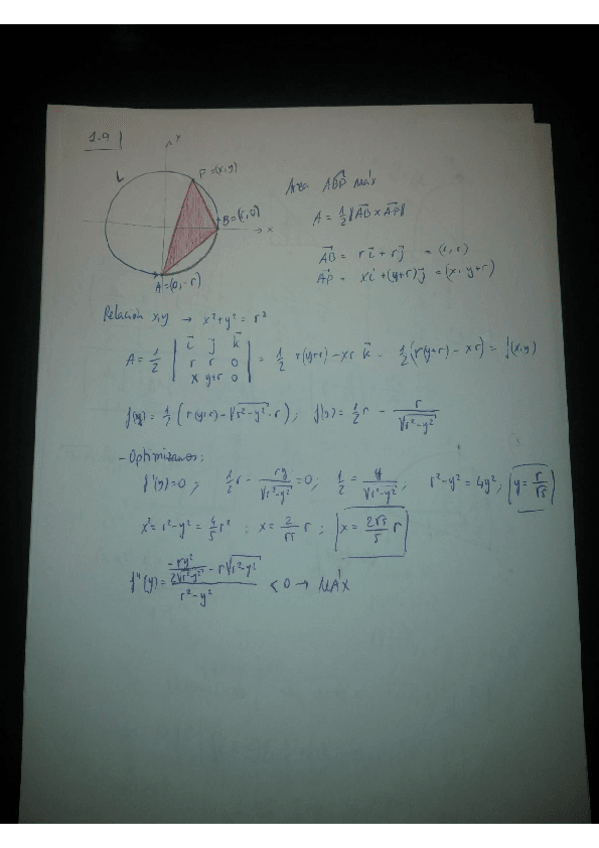 1.9
y
P=(x,y)
L
B=(r,0)
x
A=(0,-r)
Area ABP máx
A = 1/2 |AB x AP|
AB = r i + r j = (r, r)
AP = x i + (y+r) j = (x, y+r)
Relación x,y → x²+y² = r²
A = 1/2 | i j k ; r r 0 ; x y+r 0 | = 1/2 r(y+r) - xr k = 1/2 (r(y+r) - xr) = f(x,y)
f(y) = 1/2 (r(y+r) - √(r²-y²) · r); f'(y) = 1/2 r - r/√(r²-y²)
- Optimizamos:
f'(y)=0; 1/2 r - ry/√(r²-y²) = 0; 1/2 = y/√(r²-y²) r²-y² = 4y²; y = r/√5
x² = r²-y² = 4/5 r²; x = 2/√5 r; x = 2√5/5 r
f''(y) = (-ry²/2√(r²-y²) - r√(r²-y²))/(r²-y²) < 0 → MÁX